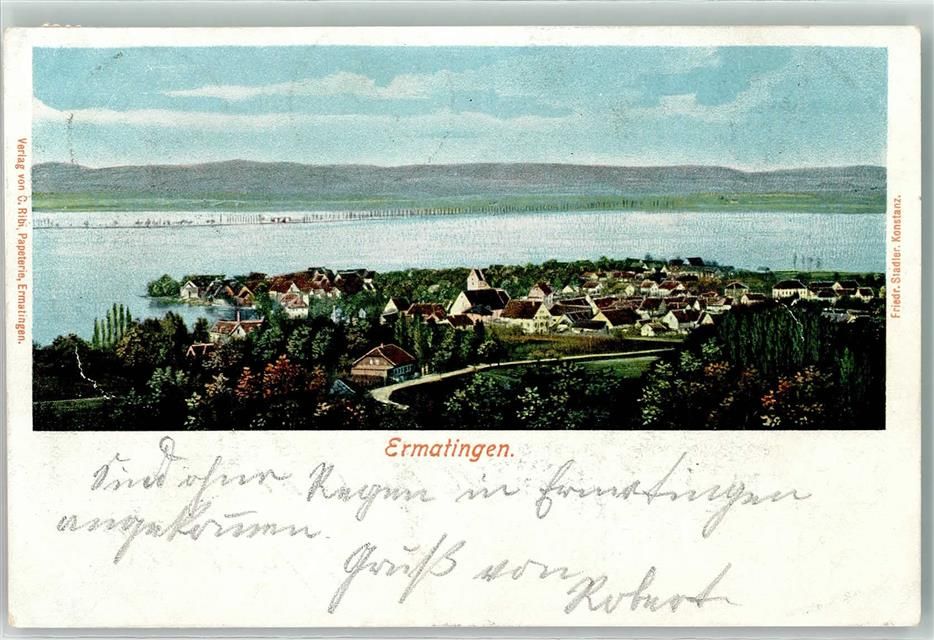 Verlag von C. Ribi, Papeterin, Ermatingen.
Friedr. Stadler. Konstanz.
Ermatingen.
Sind ohne Regen in Ermatingen
angekom̄en.
Gruß von
Robert